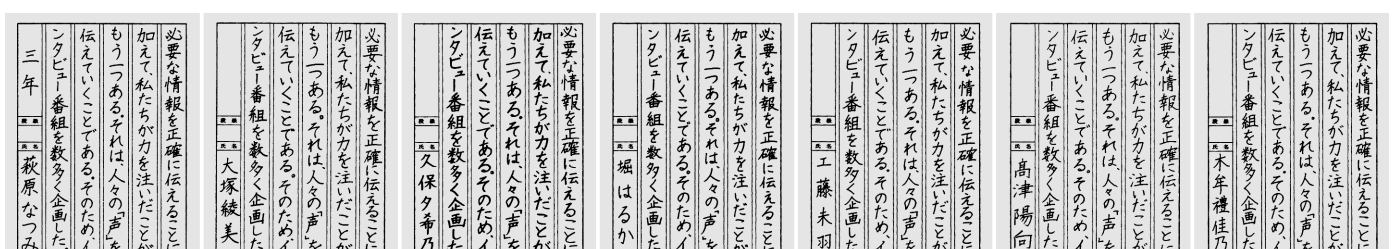 必要な情報を正確に伝えることに
加えて、私たちが力を注いだことが
もう一つある。それは、人々の「声」を
伝えていくことである。そのため、イ
ンタビュー番組を数多く企画した
段級
氏名
木牟禮佳乃
必要な情報を正確に伝えることに
加えて、私たちが力を注いだことが
もう一つある。それは、人々の「声」を
伝えていくことである。そのため、イ
ンタビュー番組を数多く企画した
段級
氏名
高津陽向
必要な情報を正確に伝えることに
加えて、私たちが力を注いだことが
もう一つある。それは、人々の「声」を
伝えていくことである。そのため、イ
ンタビュー番組を数多く企画した
段級
氏名
工藤未羽
必要な情報を正確に伝えることに
加えて、私たちが力を注いだことが
もう一つある。それは、人々の「声」を
伝えていくことである。そのため、イ
ンタビュー番組を数多く企画した
段級
氏名
堀はるか
必要な情報を正確に伝えることに
加えて、私たちが力を注いだことが
もう一つある。それは、人々の「声」を
伝えていくことである。そのため、イ
ンタビュー番組を数多く企画した
段級
氏名
久保夕希乃
必要な情報を正確に伝えることに
加えて、私たちが力を注いだことが
もう一つある。それは、人々の「声」を
伝えていくことである。そのため、イ
ンタビュー番組を数多く企画した
段級
氏名
大塚綾美
必要な情報を正確に伝えることに
加えて、私たちが力を注いだことが
もう一つある。それは、人々の「声」を
伝えていくことである。そのため、イ
ンタビュー番組を数多く企画した
三年
段級
氏名
荻原なつみ